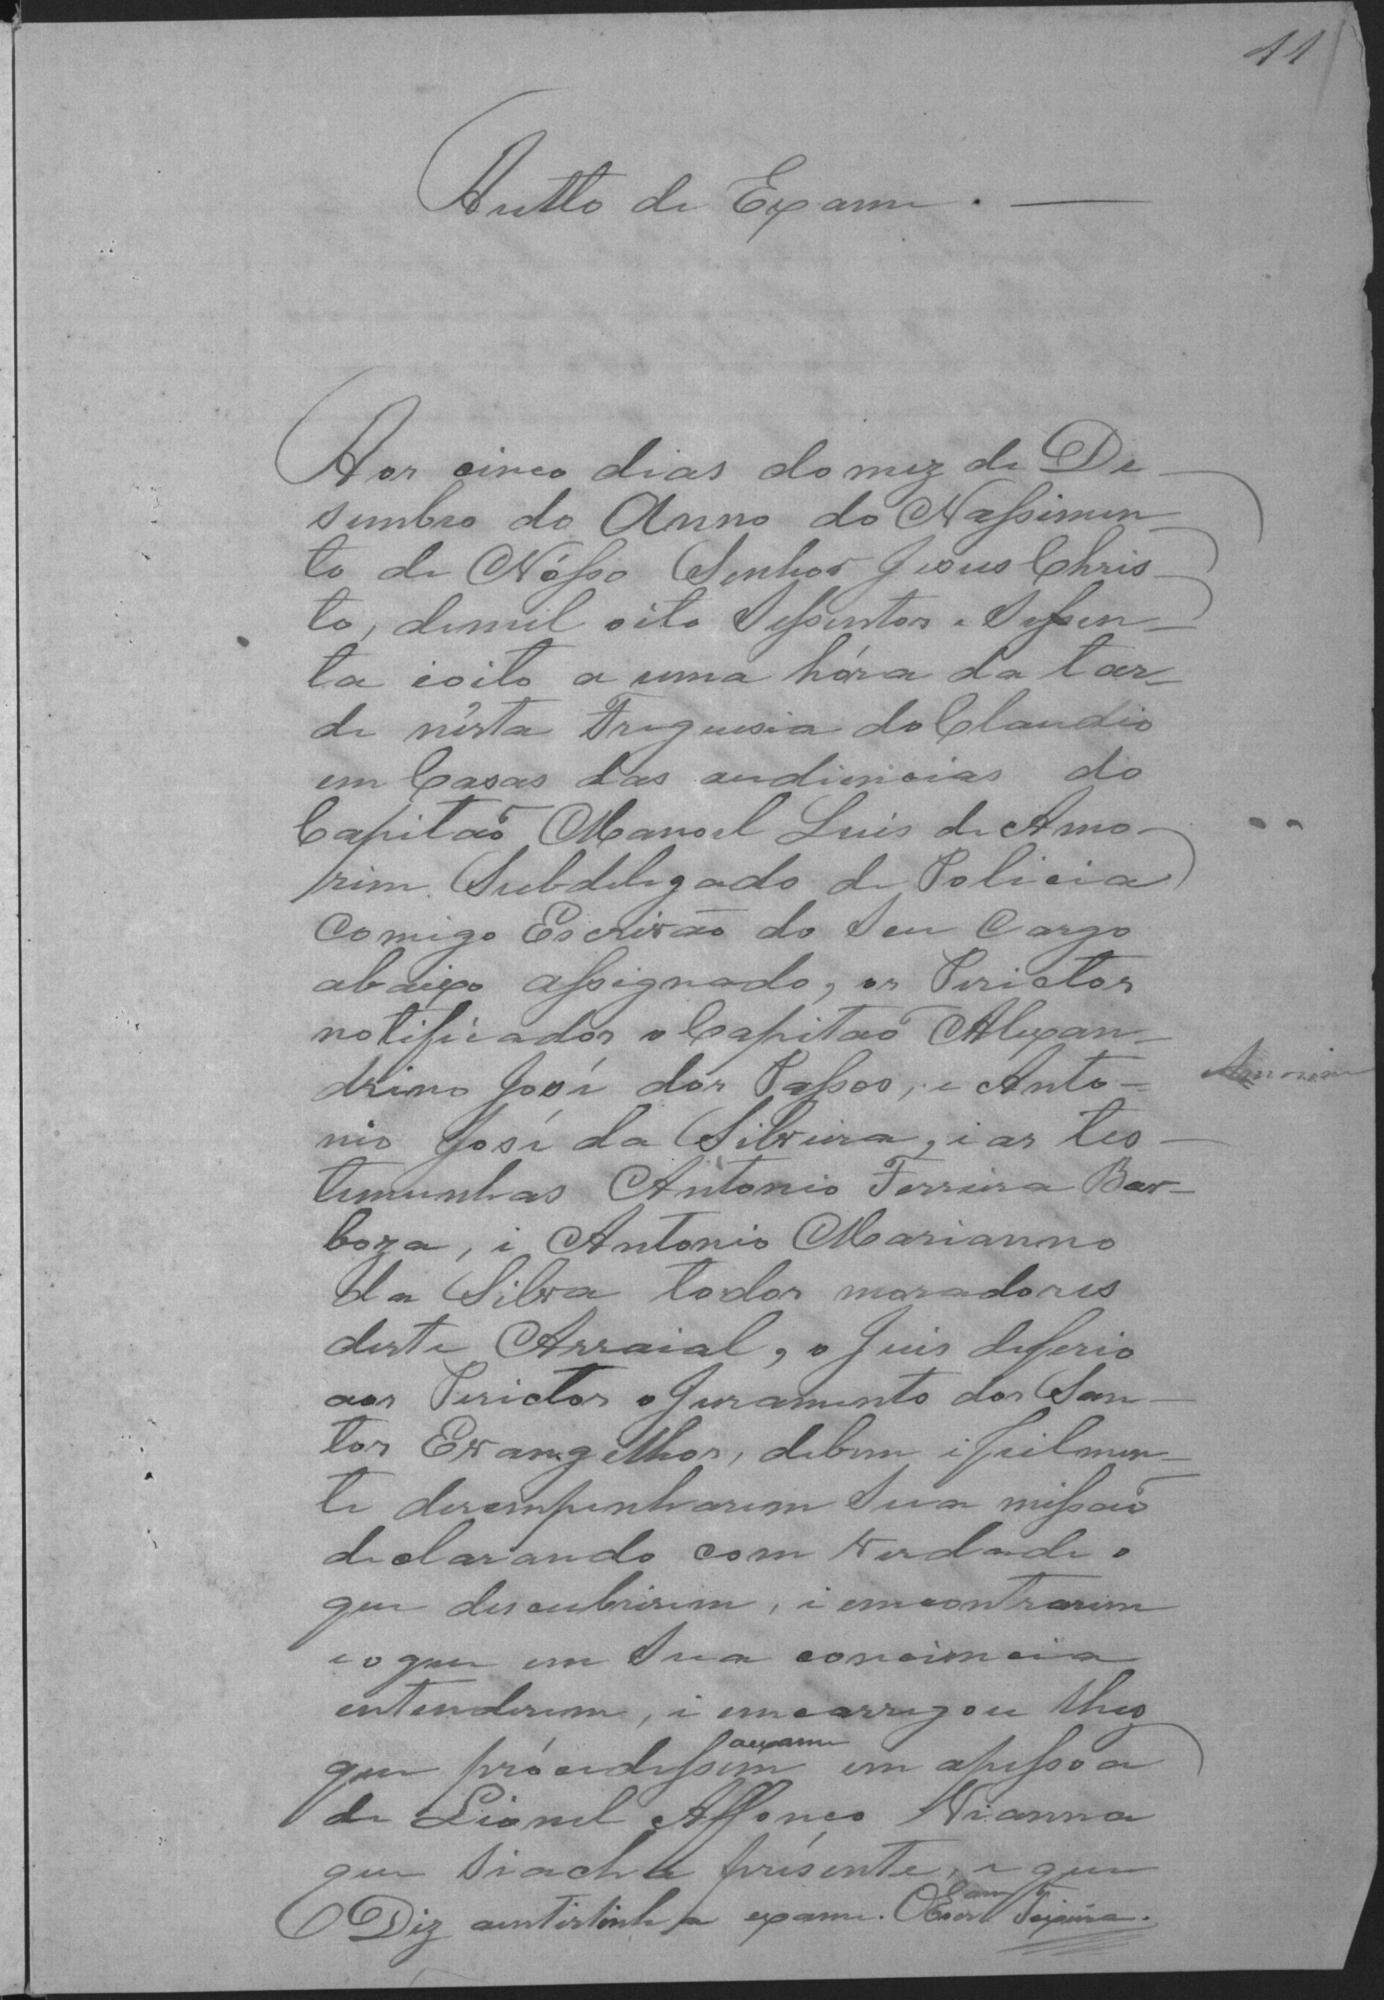 11
Autto de Exame.
Aos cinco dias do mez de De
sembro do Anno do Nassimen
to de Nósso Senhor Jesus Chris
to, demil oito Sessentos e Sessen
ta eoito a uma hóra da tar
de nésta Freguesia do Claudio
em Casas das audiencias do
Capitaõ Manoel Luis de Amo
rim Subdelegado de Policia
Comigo Escrivaõ do Seu Cargo
abaixo assignado, os Perictos
notificados o Capitaõ Alexan
drino José dos Passos, e Anto
nio José da Silveira, e as tes
temunhas Antonio Ferreira Bar
boza, e Antonio Marianno
da Silva todos moradores
deste Arraial, o Juis deferio
aos Perictos o Juramento dos San
tos Evangelhos, debem e fielmen
te desempenharem Sua missaõ
declarando com Verdade o
que descubrirem, e emcontrarem
eoque em Sua conciencia
entenderem, e emcarregou lhes
que prócedessem auxame em apessoa
de Lionel Affonço Vianna
que Siacha présente, e que
Diz exame. Teixeira.
Amorim